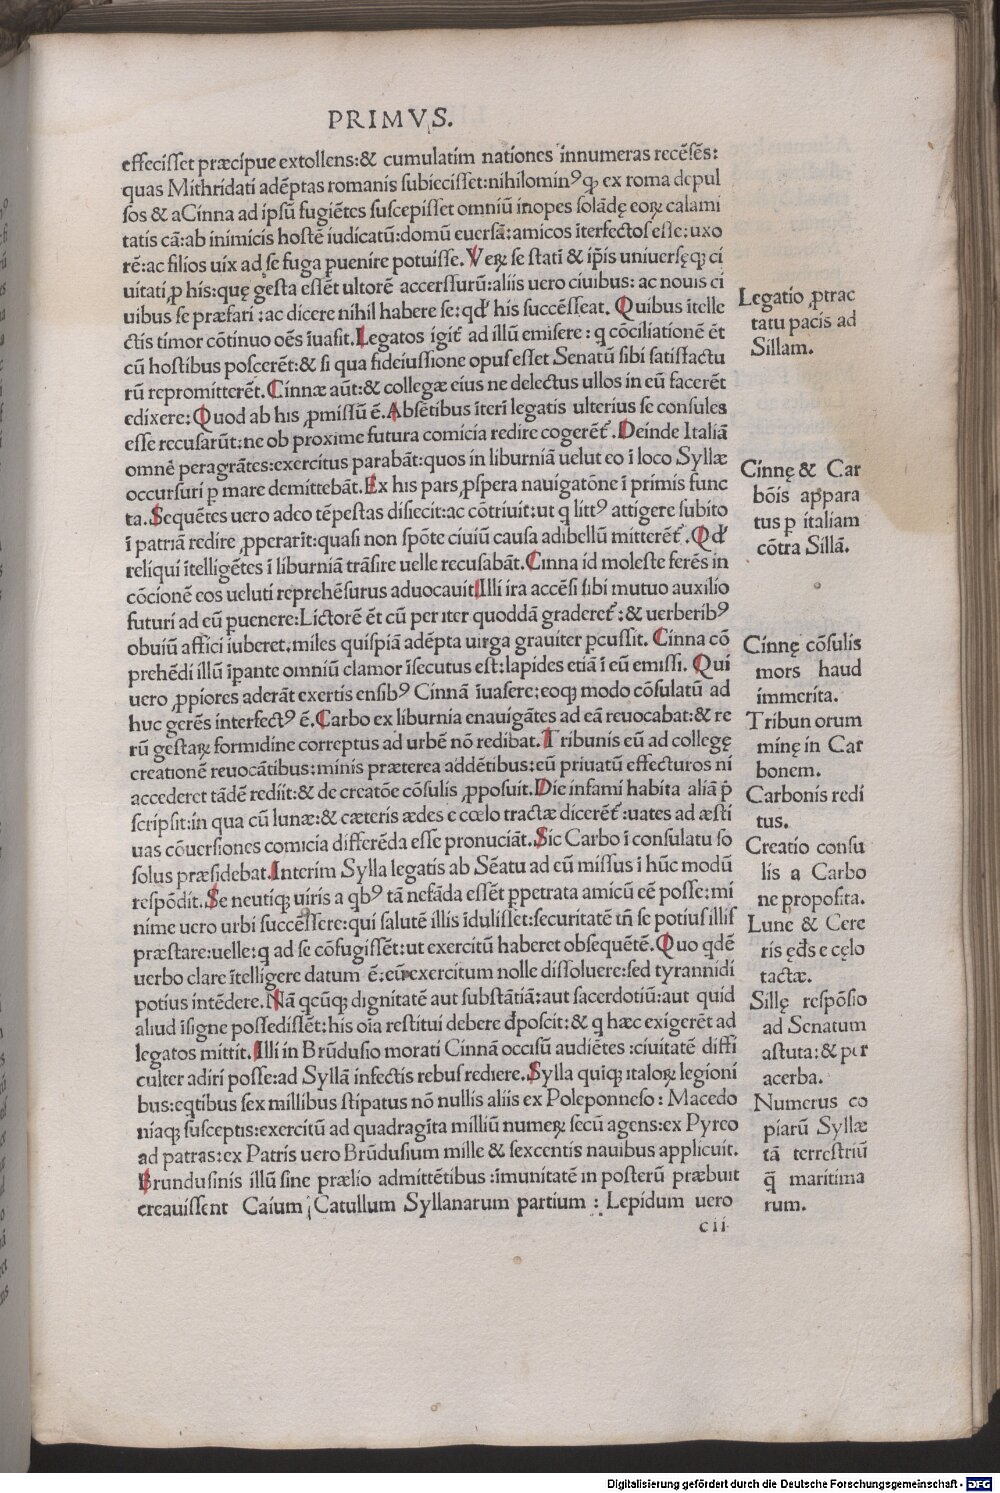 PRIMVS.
effecisset præcipue extollens:& cumulatim nationes innumeras recēsēs:
quas Mithridati adēptas romanis subiecisset:nihilominꝰ ꝙ ex roma depul
sos & aCinna ad ipsū fugiētes suscepisset omniū inopes solādę eoꝝ calami
tatis cā:ab inimicis hostē iudicatū:domū euersā:amicos īterfectos esse:uxo
rē:ac filios uix ad se fuga ꝑuenire potuisse.Veꝝ se stati & ip̄is uniuersęqꝫ ci
uitati ꝓ his:quę gesta essēt ultorē accersturū:aliis uero ciuibus: ac nouis ci
uibus se præfari : ac dicere nihil habere se:qď his succēsseat. Quibus ītelle
ctis timor cōtinuo oēs īuasit.Legatos igit̄ ad illū emisere : q cōciliationē ēt
cū hostibus poscerēt:& si qua fideiussione opus esset Senatū sibi satisfactu
rū repromitterēt.Cinnæ aūt:& collegæ eius ne delectus ullos in eū facerēt
edixere:Quod ab his ꝓmissū ē.Absētibus īteri legatis ulterius se consules
esse recusarūt:ne ob proxime futura comicia redire cogerēt̄.Deinde Italiā
omnē peragrātes:exercitus parabāt:quos in liburniā uelut eo ī loco Syllæ
occursuri ꝑ mare demittebāt.Ex his pars ꝓspera nauigatōne ī primis func
ta.Sequētes uero adeo tēpestas disiecit:ac cōtriuit:ut q littꝰ attigere subito
ī patriā redire ꝓperarīt:quasi non spōte ciuiū causa adibellū mitterēt̄.Qď
reliqui ītelligētes ī liburniā trāsire uelle recusabāt.Cinna id moleste ferēs in
cōcionē eos ueluti reprehēsurus aduocauit.Illi ira accēsi sibi mutuo auxilio
futuri ad eū ꝑuenere:Lictorē ēt cū per iter quoddā graderet̄:& uerberibꝰ
obuiū affici iuberet.miles quispiā adēpta uirga grauiter ꝑcussit. Cinna cō
prehēdi illū īpante omniū clamor īsecutus est:lapides etiā ī eū emissi. Qui
uero ꝓpiores aderāt exertis ensibꝰ Cinnā īuasere:eoqꝫ modo cōsulatū ad
huc gerēs interfectꝰ ē.Carbo ex liburnia enauigātes ad eā reuocabat:& re
rū gestaꝝ formidine correptus ad urbē nō redibat.Tribunis eū ad collegę
creationē reuocātibus:minis præterea addētibus:eū priuatū effecturos ni
accederet tādē rediit:& de creatōe cōsulis ꝓposuit.Die infami habita aliā p̄
scripsit:in qua cū lunæ:& cæteris ædes e cœlo tractæ dicerēt̄:uates ad æsti
uas cōuersiones comicia differēda esse pronuciāt.Sic Carbo ī consulatu so
solus præsidebat.Interim Sylla legatis ab Sēatu ad eū missus ī hūc modū
respōdit.Se neutiqꝫ uiris a qbꝰ tā nefāda essēt ꝑpetrata amicū eē posse:mi
nime uero urbi succēssere:qui salutē illis īdulisset:securitatē tn̄ se potius illis
præstare:uelle:q ad se cōfugissēt:ut exercitū haberet obsequētē.Quo qdē
uerbo clare ītelligere datum ē:eūexercitum nolle dissoluere:sed tyrannidi
potius intēdere.Nā qcūqꝫ dignitatē aut substātiā:aut sacerdotiū:aut quid
aliud īsigne possedissēt:his oīa restitui debere đposcit:& q hæc exigerēt ad
legatos mittit.Illi in Brūdusio morati Cinnā occisū audiētes :ciuitatē diffi
culter adiri posse:ad Syllā infectis rebus rediere.Sylla quiqꝫ italoꝝ legioni
bus:eqtibus sex millibus stipatus nō nullis aliis ex Poleponneso : Macedo
niaqꝫ susceptis:exercitū ad quadragīta milliū numeꝝ secū agens:ex Pyreo
ad patras:ex Patris uero Brūdusium mille & sexcentis nauibus applicuit.
Brundusinis illū sine prælio admittētibus :imunitatē in posterū præbuit
creauissent Caium Catullum Syllanarum partium : Lepidum uero
cii
Legatio ꝓtrac
tatu pacis ad
Sillam.
Cinnę & Car
bōis appara
tus ꝑ italiam
cōtra Sillā.
Cinnę cōsulis
mors haud
immerita.
Tribun orum
minę in Car
bonem.
Carbonis redi
tus.
Creatio consu
lis a Carbo
ne proposita.
Lune & Cere
ris ęđs e cęlo
tactæ.
Sillę respōsio
ad Senatum
astuta:& per
acerba.
Numerus co
piarū Syllæ
tā terrestriū
q̄ maritima
rum.
Digitalisierung gefördert durch die Deutsche Forschungsgemeinschaft - DFG